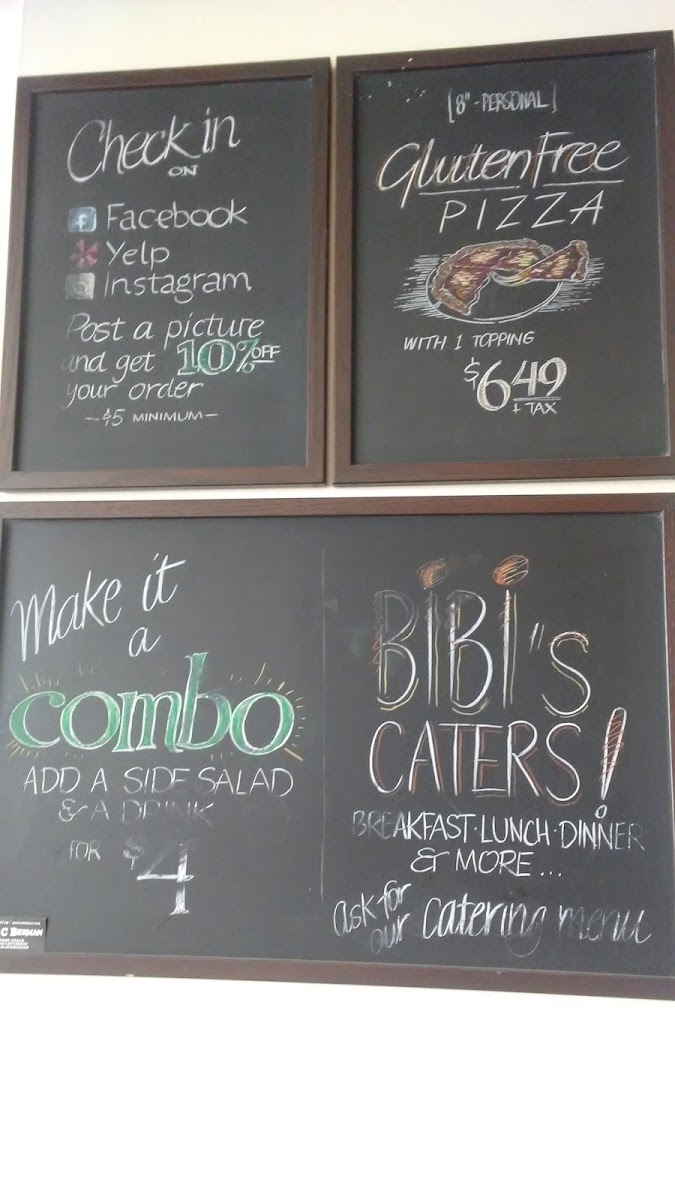 Check in
ON
Facebook
Yelp
Instagram
Post a picture
and get 10% OFF
your order
- $5 MINIMUM -
[8" - PERSONAL]
Gluten Free
PIZZA
WITH 1 TOPPING
$6.49
+ TAX
Make it
a
combo
ADD A SIDE SALAD
& A DRINK
FOR $4
BiBi's
CATERS!
BREAKFAST · LUNCH · DINNER
& MORE...
ask for
our catering menu
C BERMAN